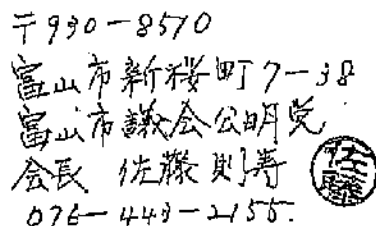 〒930-8510
富山市新桜町7-38
富山市議会公明党
会長 佐藤則寿
佐藤
076-443-2155.